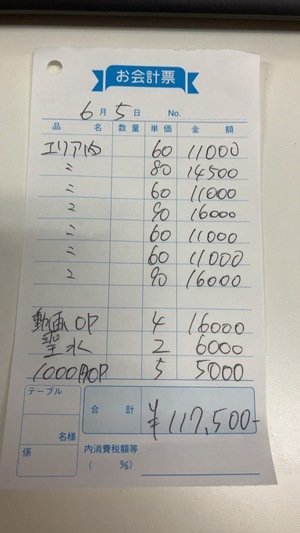 お会計票
6月 5日 No.
品名 数量 単価 金額
エリア内 60 11000
〃 80 14500
〃 60 11000
〃 90 16000
〃 60 11000
〃 60 11000
〃 90 16000
動画OP 4 16000
聖水 2 6000
1000円OP 5 5000
テーブル
名様
係
合計 ¥117,500-
内消費税額等
( %)